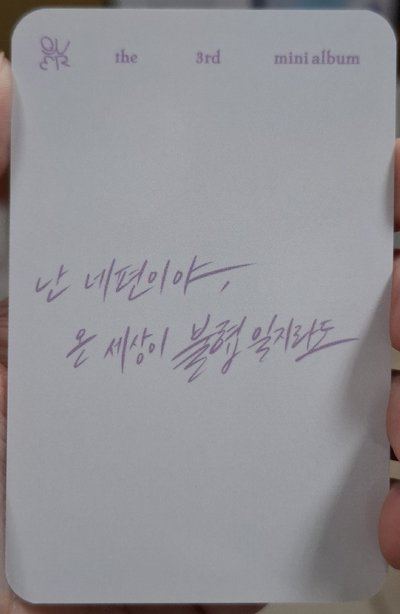 QW
ER
the 3rd mini album
난 네편이야,
온 세상이 불협일지라도